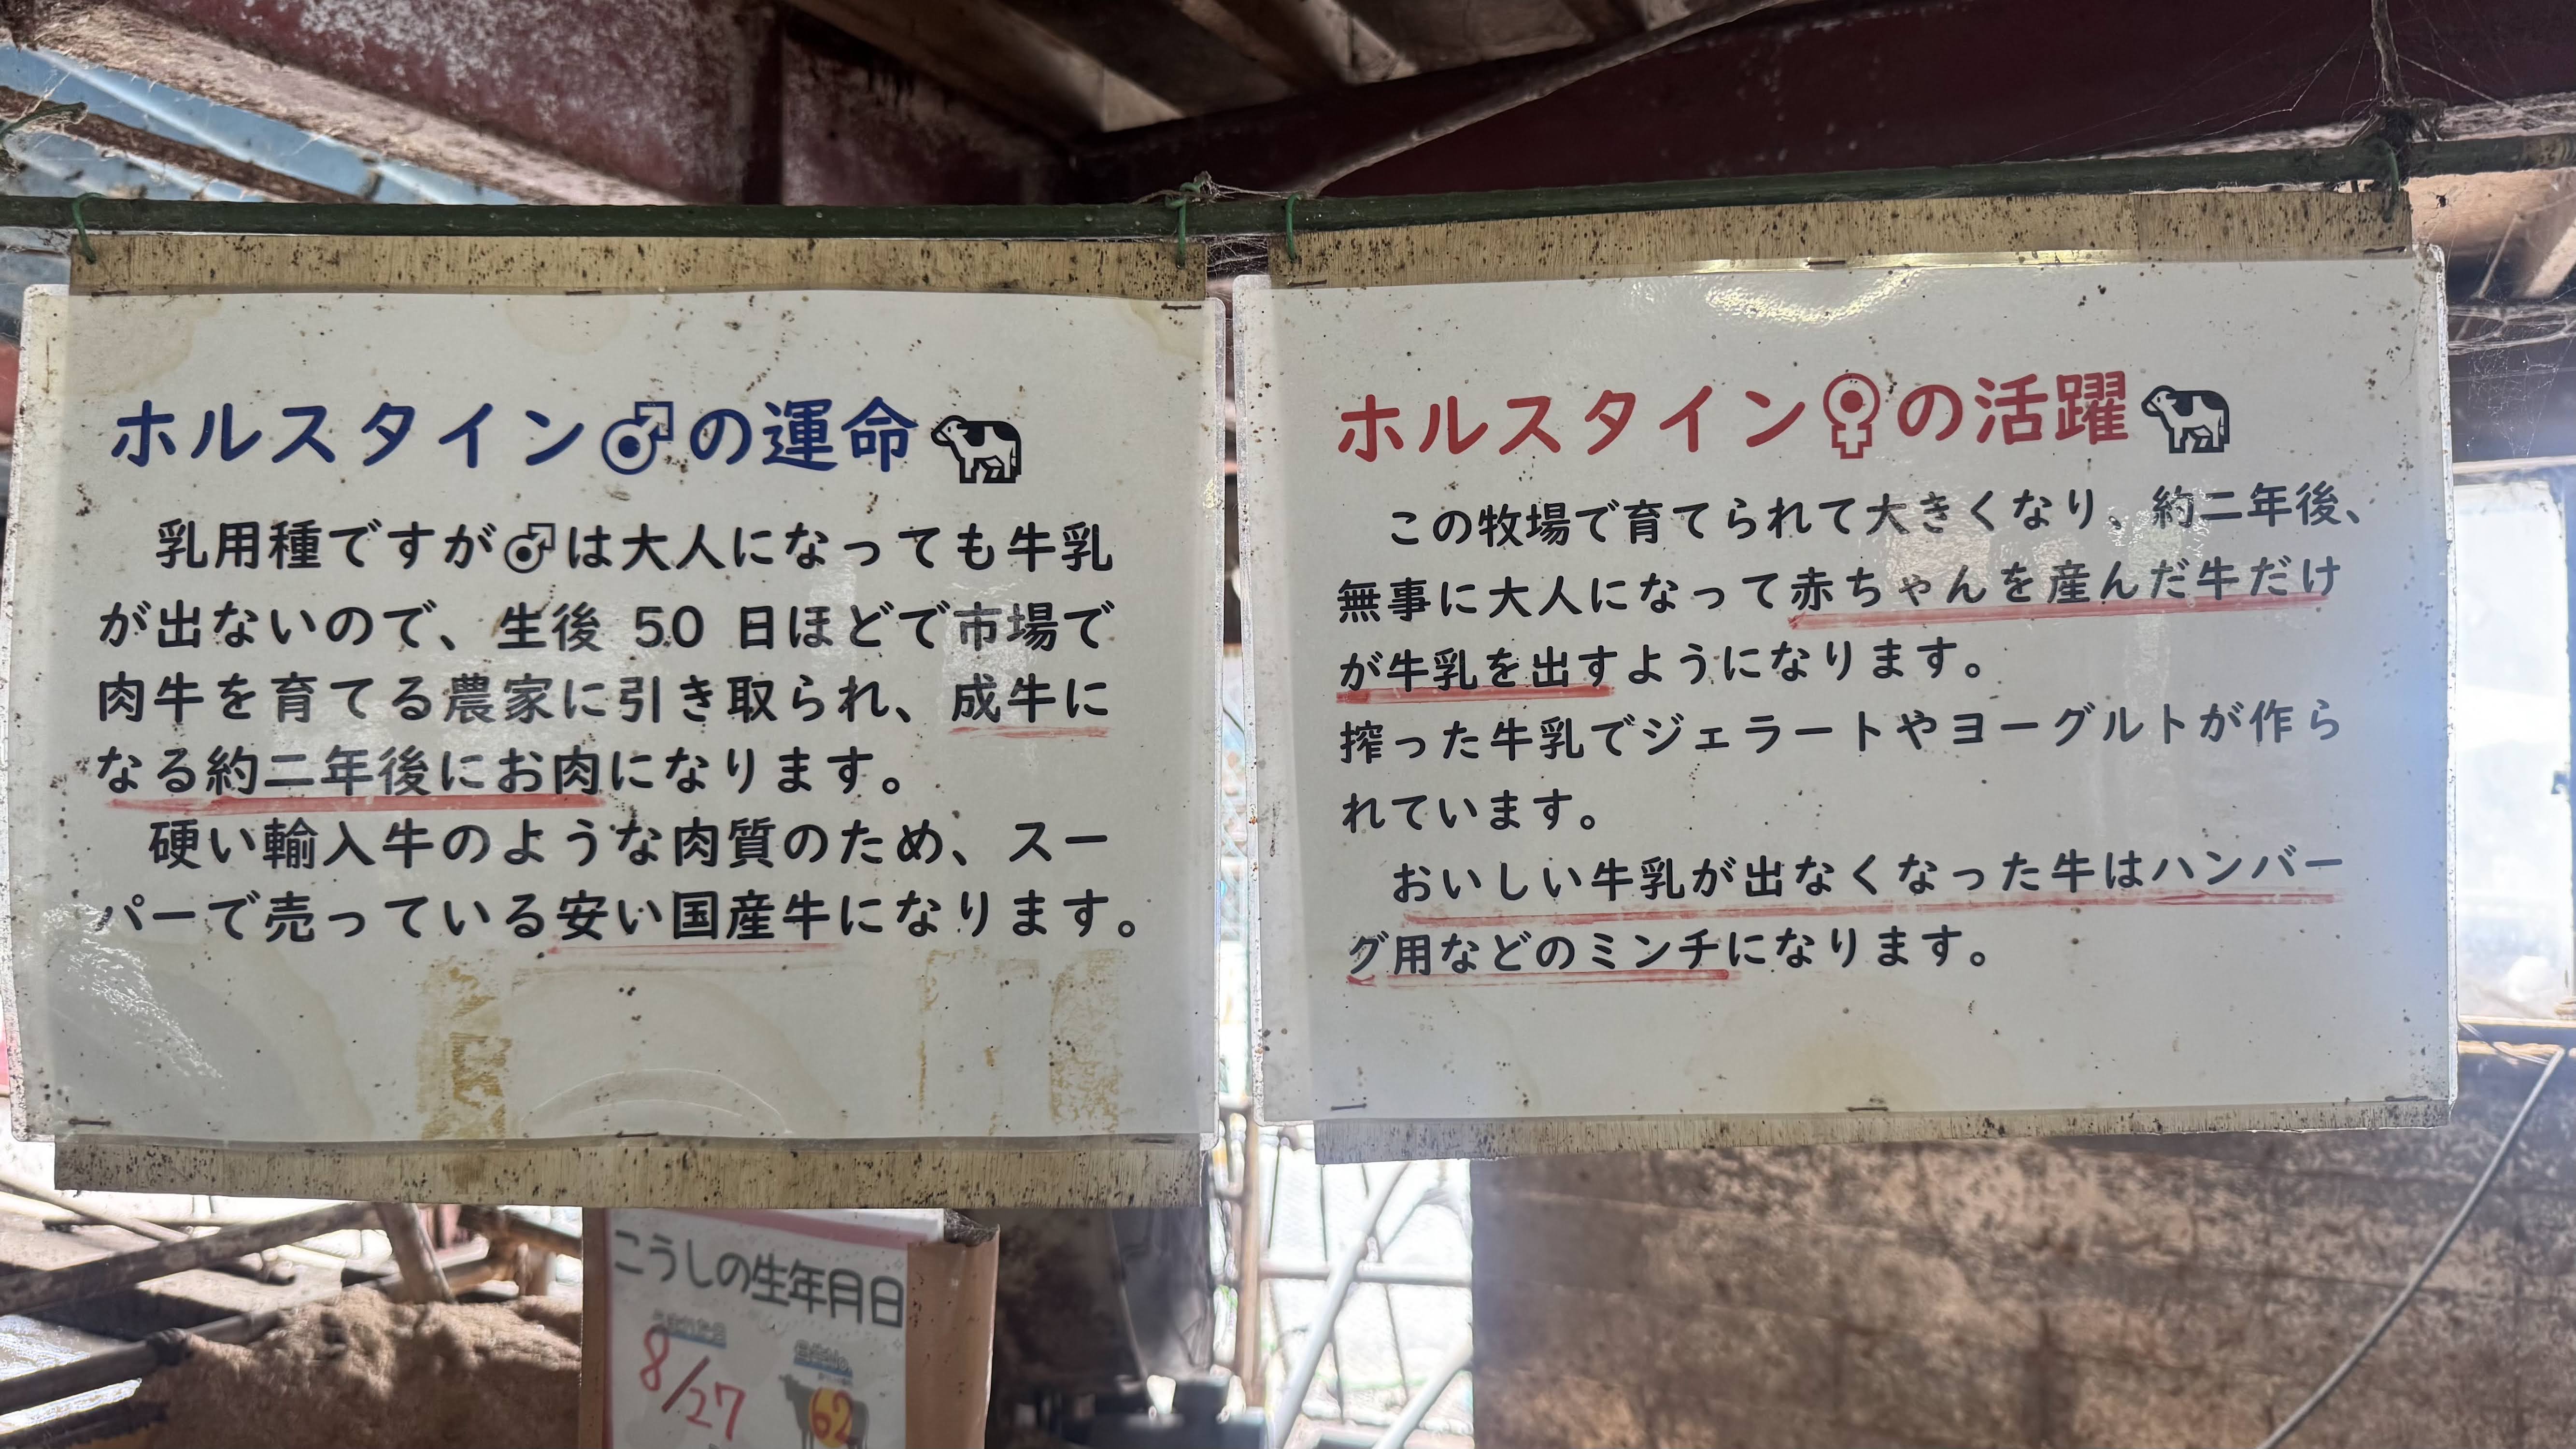 ホルスタイン♂の運命
乳用種ですが♂は大人になっても牛乳
が出ないので、生後 50 日ほどで市場で
肉牛を育てる農家に引き取られ、成牛に
なる約二年後にお肉になります。
硬い輸入牛のような肉質のため、スー
パーで売っている安い国産牛になります。
ホルスタイン♀の活躍
この牧場で育てられて大きくなり、約二年後、
無事に大人になって赤ちゃんを産んだ牛だけ
が牛乳を出すようになります。
搾った牛乳でジェラートやヨーグルトが作ら
れています。
おいしい牛乳が出なくなった牛はハンバー
グ用などのミンチになります。
こうしの生年月日
8/27
62